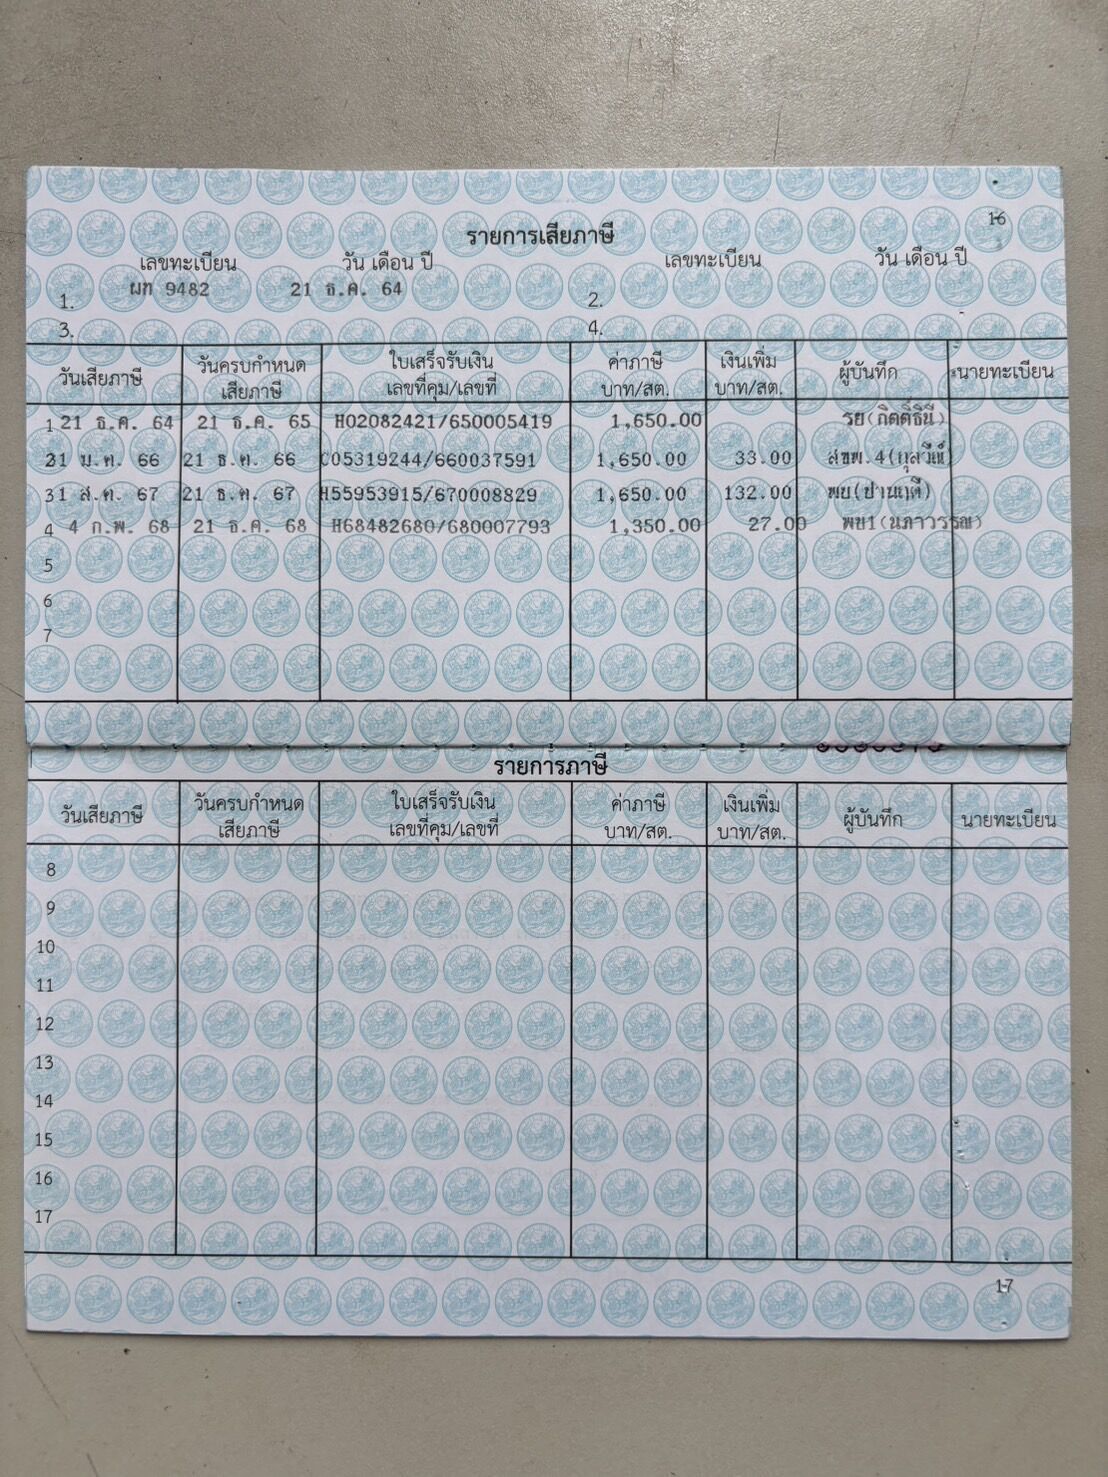 16
รายการเสียภาษี
เลขทะเบียน วัน เดือน ปี เลขทะเบียน วัน เดือน ปี
1. ผท 9482 21 ธ.ค. 64 2.
3. 4.
วันเสียภาษี วันครบกำหนด เสียภาษี ใบเสร็จรับเงิน เลขที่คุม/เลขที่ ค่าภาษี บาท/สต. เงินเพิ่ม บาท/สต. ผู้บันทึก นายทะเบียน
1 21 ธ.ค. 64 21 ธ.ค. 65 H02082421/650005419 1,650.00 รย(กิตติ์ธินี)
31 ม.ค. 66 21 ธ.ค. 66 C05319244/660037591 1,650.00 33.00 สขพ.4
31 ส.ค. 67 21 ธ.ค. 67 H55953915/670008829 1,650.00 132.00 พบ(ปานฤดี)
4 4 ก.พ. 68 21 ธ.ค. 68 H68482680/680007793 1,350.00 27.00 พบ1(นภาวรรณ)
5
6
7
รายการภาษี
วันเสียภาษี วันครบกำหนด เสียภาษี ใบเสร็จรับเงิน เลขที่คุม/เลขที่ ค่าภาษี บาท/สต. เงินเพิ่ม บาท/สต. ผู้บันทึก นายทะเบียน
8
9
10
11
12
13
14
15
16
17
17